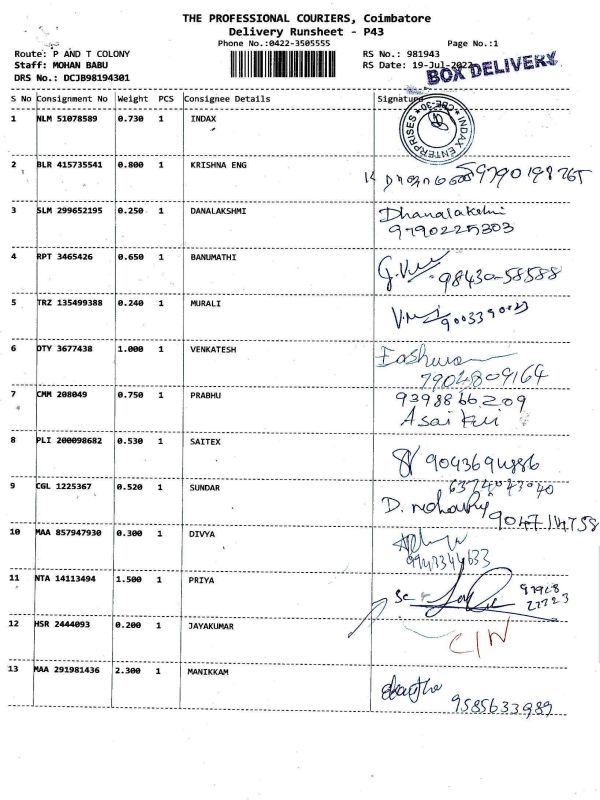 THE PROFESSIONAL COURIERS, Coimbatore
Delivery Runsheet - P43
Phone No.:0422-3505555 Page No.:1
Route: P AND T COLONY RS No.: 981943
Staff: MOHAN BABU RS Date: 19-Jul-2022
BOX DELIVERY
DRS No.: DCJB98194301
S No Consignment No Weight PCS Consignee Details Signature
1 NLM 51078589 0.730 1 INDAX
INDAX ENTERPRISES * CBE-30 *
2 BLR 415735541 0.800 1 KRISHNA ENG
9790198765
3 SLM 299652195 0.250 1 DANALAKSHMI Dhanalakshmi
9790225303
4 RPT 3465426 0.650 1 BANUMATHI
98430-58588
5 TRZ 135499388 0.240 1 MURALI
6 OTY 3677438 1.000 1 VENKATESH
7904809164
7 CMM 208049 0.750 1 PRABHU 9398866209
8 PLI 200098682 0.530 1 SAITEX
9043694886
9 CGL 1225367 0.520 1 SUNDAR 6374043040
9047114758
10 MAA 857947930 0.300 1 DIVYA
11 NTA 14113494 1.500 1 PRIYA
12 HSR 2444093 0.200 1 JAYAKUMAR
C/N
13 MAA 291981436 2.300 1 MANIKKAM
9585633989